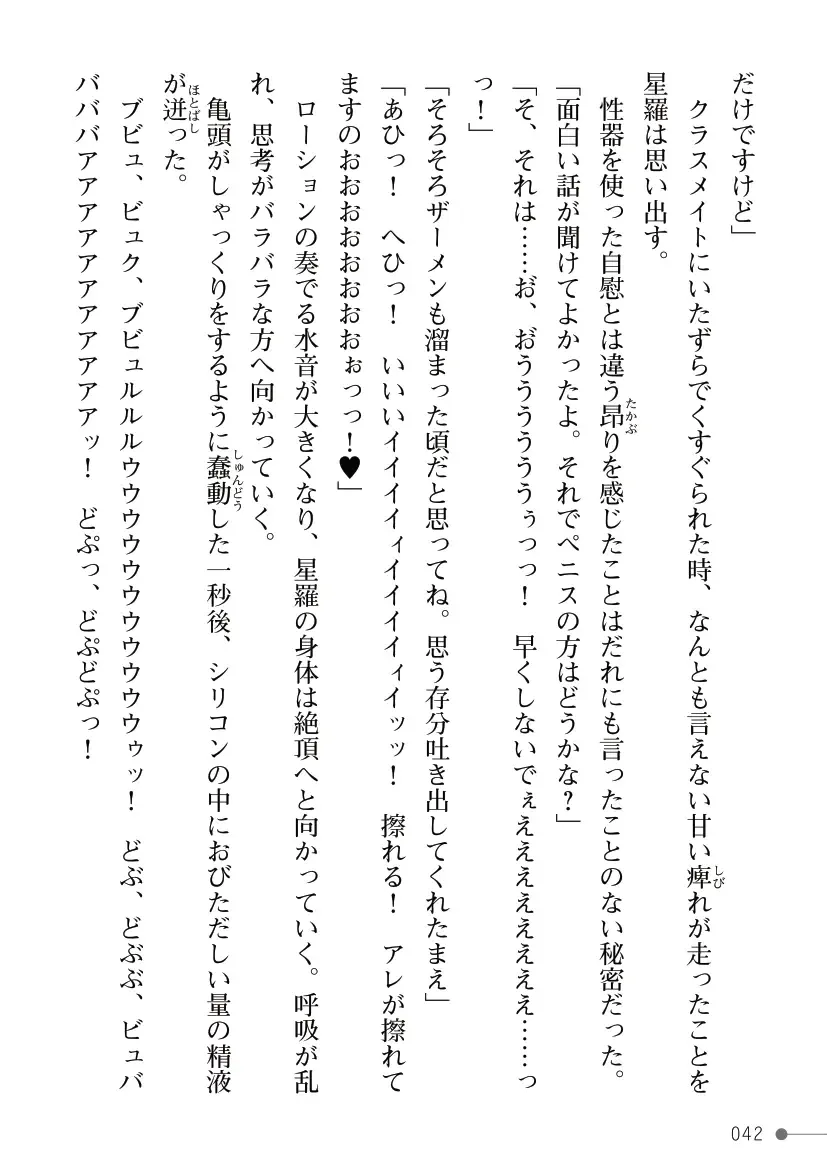 だけですけど」
クラスメイトにいたずらでくすぐられた時、なんとも言えない甘い痺れが走ったことを
しび
星羅は思い出す。
性器を使った自慰とは違う昂りを感じたことはだれにも言ったことのない秘密だった。
たかぶ
「面白い話が聞けてよかったよ。それでペニスの方はどうかな？」
「そ、それは……お゛、お゛うううううぅっっ！　早くしないでぇえええええええ……っ
っ！」
「そろそろザーメンも溜まった頃だと思ってね。思う存分吐き出してくれたまえ」
「あひっ！　へひっ！　いいいイイイイィイイイイィイッッ！　擦れる！　アレが擦れて
ますのおおおおおおおおぉっっ！♥」
ローションの奏でる水音が大きくなり、星羅の身体は絶頂へと向かっていく。呼吸が乱
れ、思考がバラバラな方へ向かっていく。
亀頭がしゃっくりをするように蠢動した一秒後、シリコンの中におびただしい量の精液
しゅんどう
が迸った。
ほとばし
ブビュ、ビュク、ブビュルルルウウウウウウウウウウゥッ！　どぶ、どぶぶ、ビュバ
バババアアアアアアアアアアアッ！　どぷっ、どぷどぷっ！
042